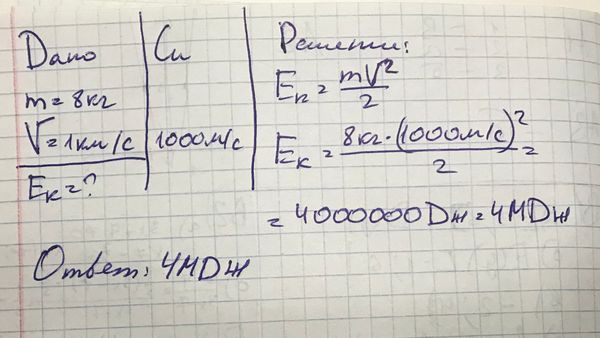 Дано
m = 8кг
V = 1км/с
Eк = ?
Си
1000м/с
Решение:
Eк = mV²/2
Eк = 8кг·(1000м/с)²/2 =
= 4000000Dж = 4МDж
Ответ: 4МDж